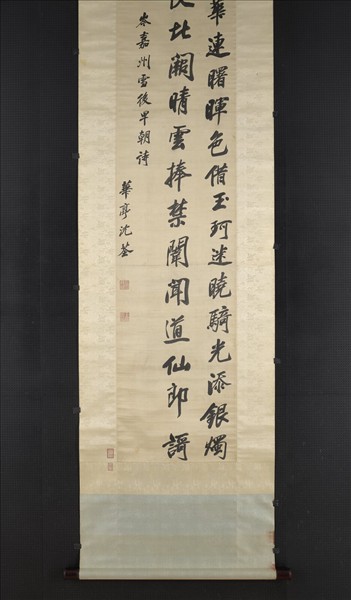 華連曙暉色借玉珂迷曉騎光添銀燭
北闕晴雲捧禁闈聞道仙郎謌
岑嘉州雪後早朝詩
華亭沈荃